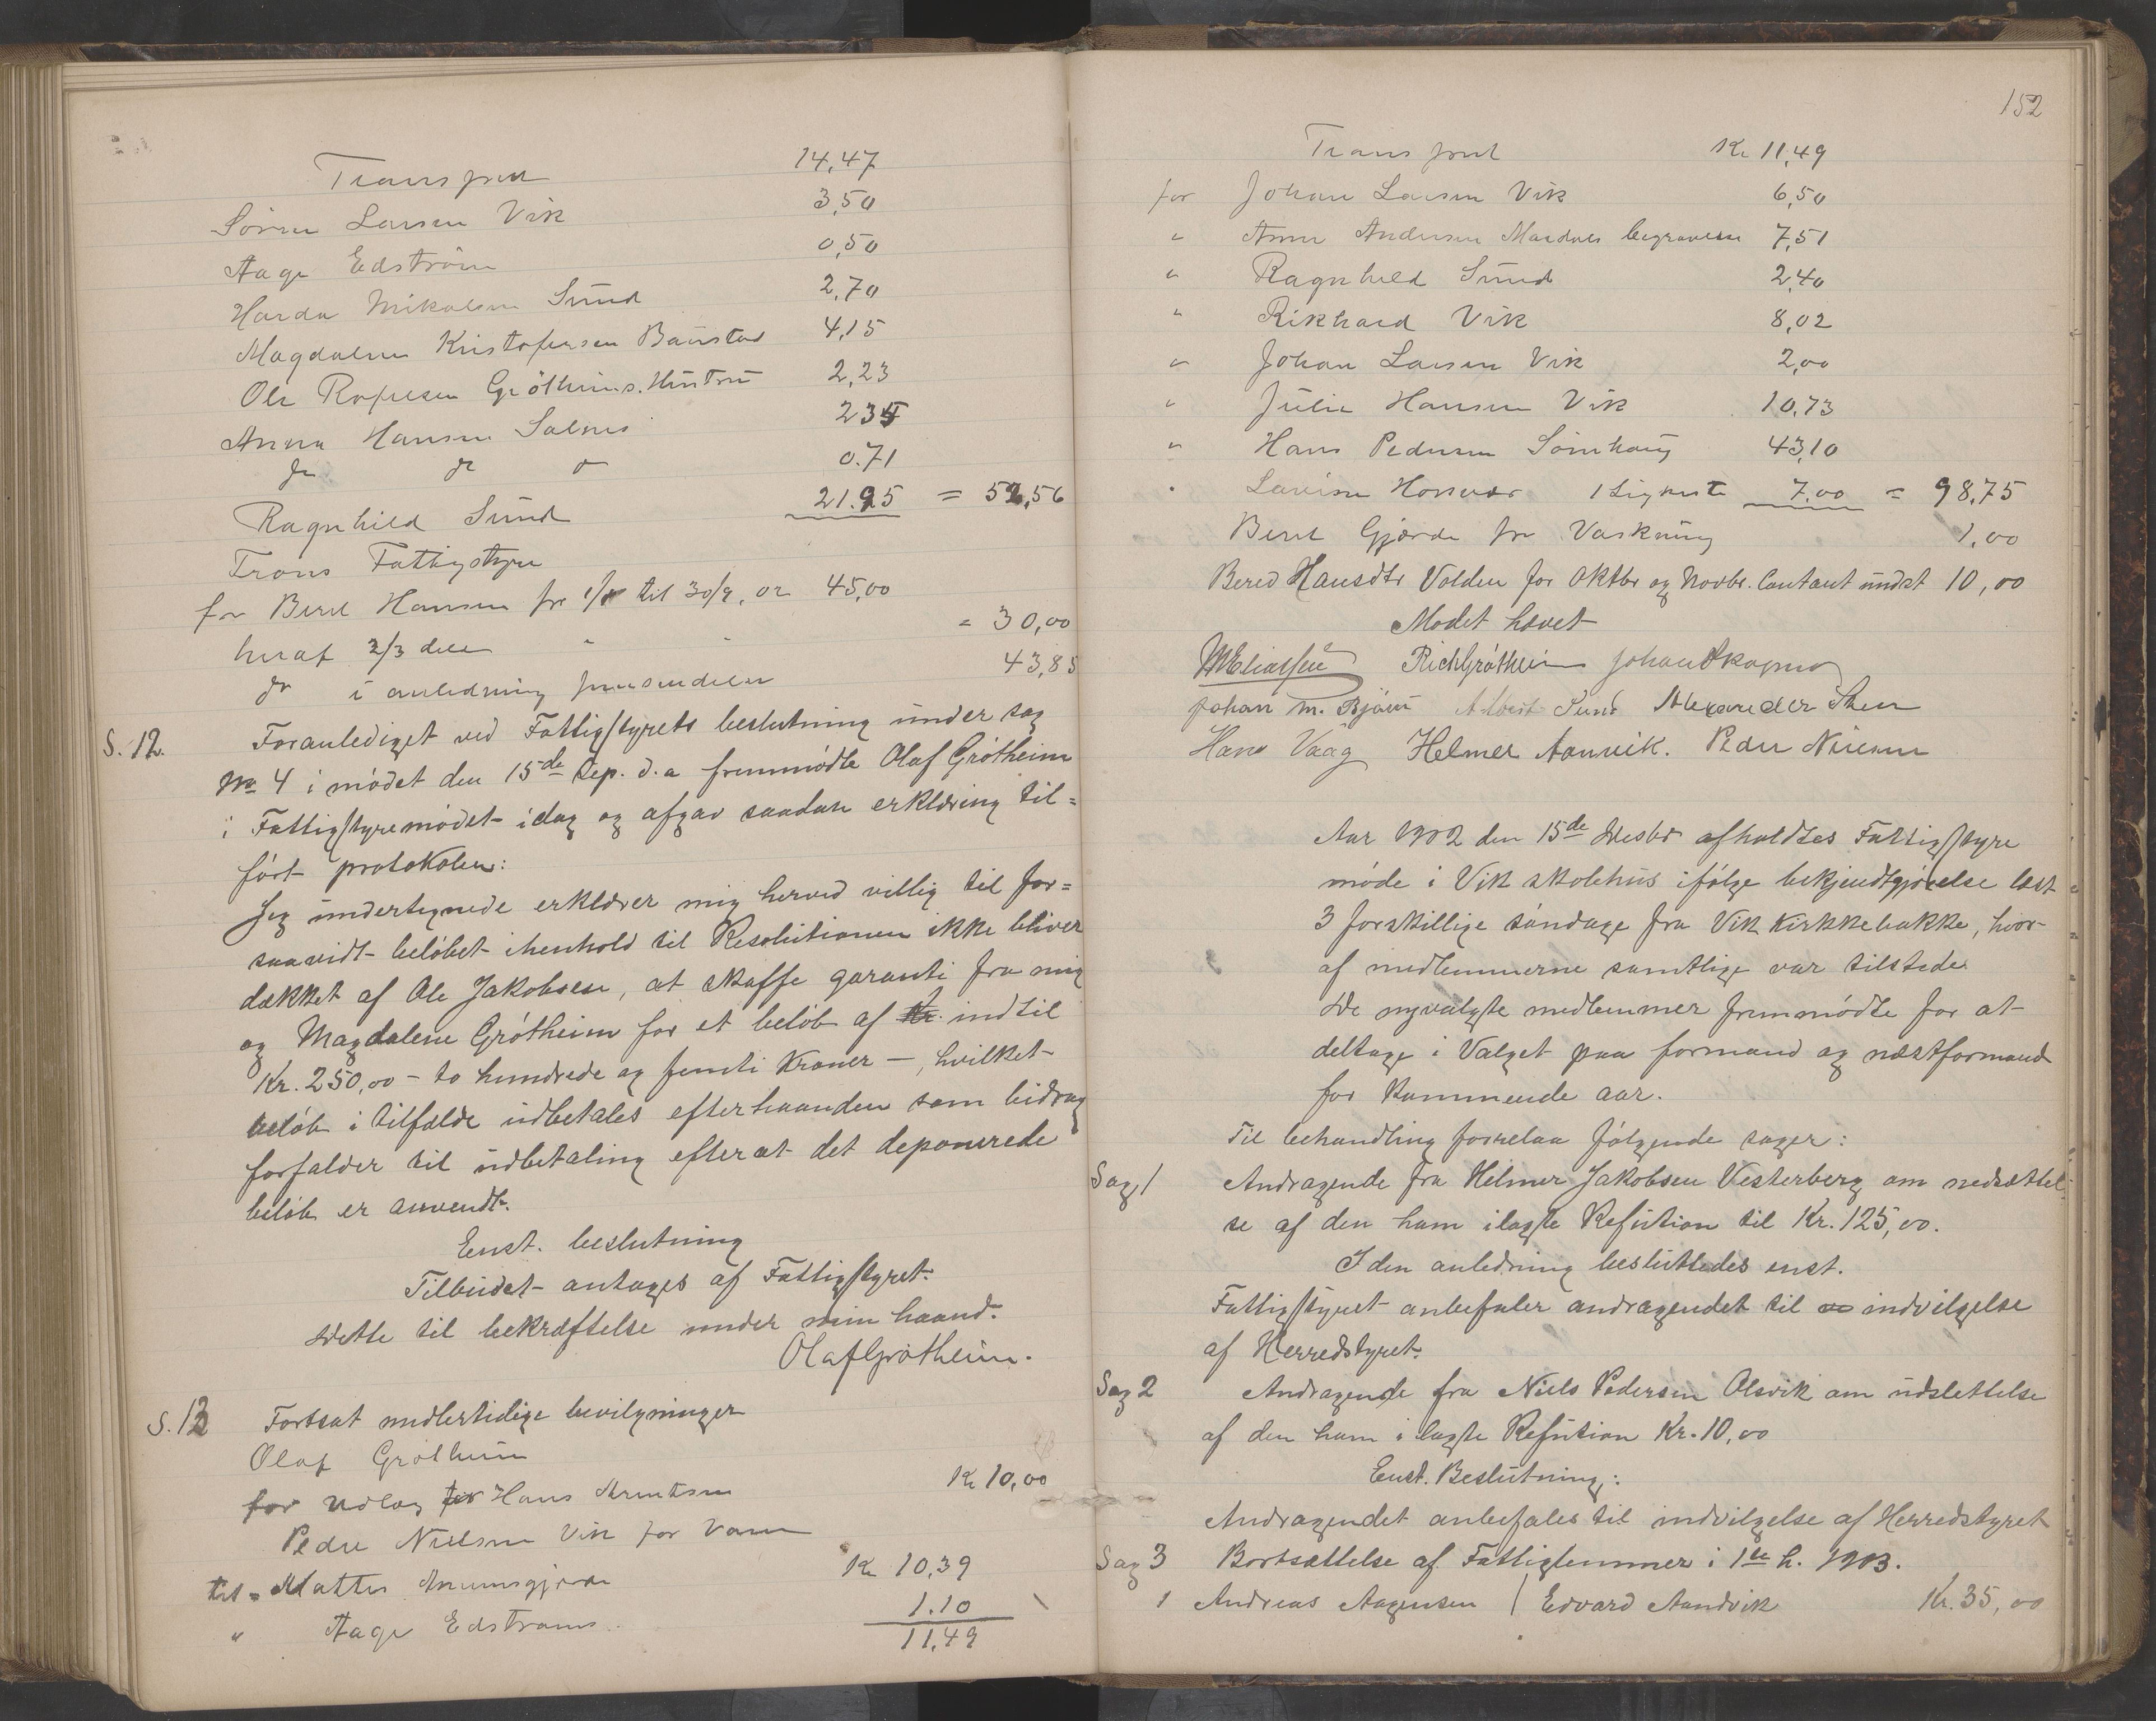 Transport 14,47
Sören Larsen Vik 3,50
Aage Edström 0,50
Harda Mikalsen Sund 2,70
Magdalene Kristofersen Baustad 4,15
Ole Grötheims Hustru 2,23
Anna Hansen Salnes 2 35
do do o 0.71
Ragnhild Sund 21.95 = 52,56
Fattigstyre
for Beret Hansen fra til 30/9, 02 45,00
heraf 2/3 dele " " = 30,00
do i anledning 43,85
S. 12. Foranlediget ved Fattigstyrets beslutning under sag
No 4 i mödet den 15de Sep. d.a fremmödte Olaf Grötheim
i Fattigstyremödet idag og afgav saadan erklæring til=
fört protokolen:
Jeg undertegnede erklærer mig herved villig til for=
saavidt beløbet ihenhold til Resolutionen ikke bliver
dækket af Ole Jakobsen, at skaffe garanti fra mig
og Magdalene Grötheim for et belöb af Kr. indtil
Kr. 250,00 - to hundrede og femti Kroner -, hvilket
belöb i tilfælde udbetales efterhaanden som bidrag
forfalder til udbetaling efterat det deponerede
belöb er anvendt.
Enst. beslutning
Tilbudet antages af Fattigstyret.
Dette til bekræftelse under min haand.
Olaf Grötheim.
S. 13 Fortsat midlertidige bevilgninger
Olaf Grötheim
for Udlæg for Hans Arntsen Kr 10,00
Peder Nielsen Vik for Varer
til " Mattes Kr 10,39
" Aage Edströms 1.10
11,49
152
Transport Kr 11,49
for Johan Larsen Vik 6,50
" Anne Andersen begravelse 7,51
" Ragnhild Sund 2,40
" Rikhard Vik 8,02
" Johan Larsen Vik 2,00
" Julie Hansen Vik 10,73
" Hans Pedersen Sömhaug 43,10
" Lavise 1 Ligkiste 7,00 = 98,75
Beret Gjærde for Vaskning 1,00
Bered Hansdtr Volden for Oktbr og Novbr. Contant undst 10,00
Mödet hævet
MEliassen Rich Grötheim Johan Skogmo
Johan M. Björn Albert Sund Alexander Steen
Hans Vaag Helmer Aanvik. Peder Nielsen
Aar 1902 den 15de Desbr afholdtes Fattigstyre
möde i Vik skolehus ifölge bekjendtgjörelse læst
3 forskillige söndage fra Vik Kirkkebakke, hvor-
af medlemmerne samtlige var tilstede.
De nyvalgte medlemmer fremmödte for at
deltage i Valget paa formand og næstformand
for kommende aar.
Til behandling forrelaa fölgende sager:
Sag 1 Andragende fra Helmer Jakobsen Vesterberg om nedsættel
se af den ham ilagte Refusion til Kr. 125,00.
I den anledning besluttedes enst.
Fattigstyret anbefaler andragendet til indvilgelse
af Herredstyret.
Sag 2 Andragende fra Niels Pedersen Alsvik om udslettelse
af den ham i lagte Refusion Kr. 10,00
Enst. Beslutning:
Andragendet anbefales til indvilgelse af Herredstyret
Sag 3 Bortsættelse af Fattiglemmer i 1ste h. 1903.
1 Andreas Aagensen / Edvard Aandvik Kr. 35,00